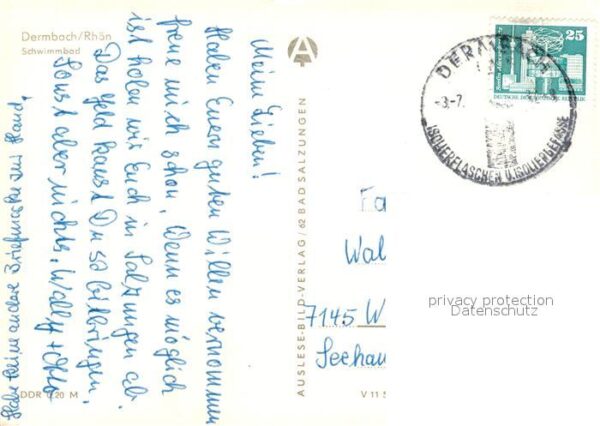 Dermbach/Rhön
Schwimmbad
Meine Lieben!
Haben Euern guten Willen vernommen
freue mich schon, Wenn es möglich
ist holen wir Euch in Salzungen ab
Das Geld kannst Du so beibringen.
Sonst aber nichts, Wally + Otto
Habe keine andere Briefmarke zur Hand,
DDR 0,20 M
AUSLESE-BILD-VERLAG / 62 BAD SALZUNGEN
V 11 5
25
Berlin, Alexanderplatz
DEUTSCHE DEMOKRATISCHE REPUBLIK
DERMBACH
-3.-7.
ISOLIERFLASCHEN U. ISOLIERGEFÄSSE
Fa
Wal
7145 W
Seehau
privacy protection
Datenschutz